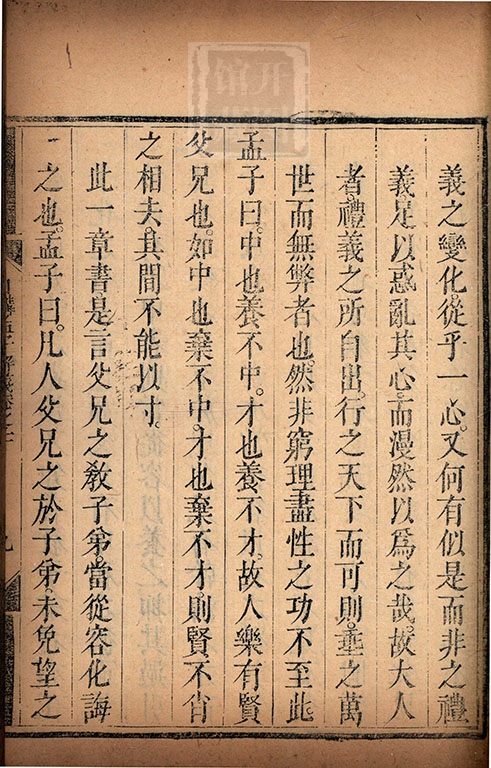 義之變化從乎一心。又何有似是而非之禮
義足以惑亂其心。而漫然以爲之哉。故大人
者。禮義之所自出。行之天下而可則。埀之萬
世而無弊者也。然非窮理盡性之功不至此。
孟子曰。中也養不中。才也養不才。故人樂有賢
父兄也。如中也棄不中。才也棄不才。則賢不肖
之相去。其間不能以寸。
此一章書是言父兄之教子弟。當從容化誨
之也。孟子曰。凡人父兄之於子弟。未免望之